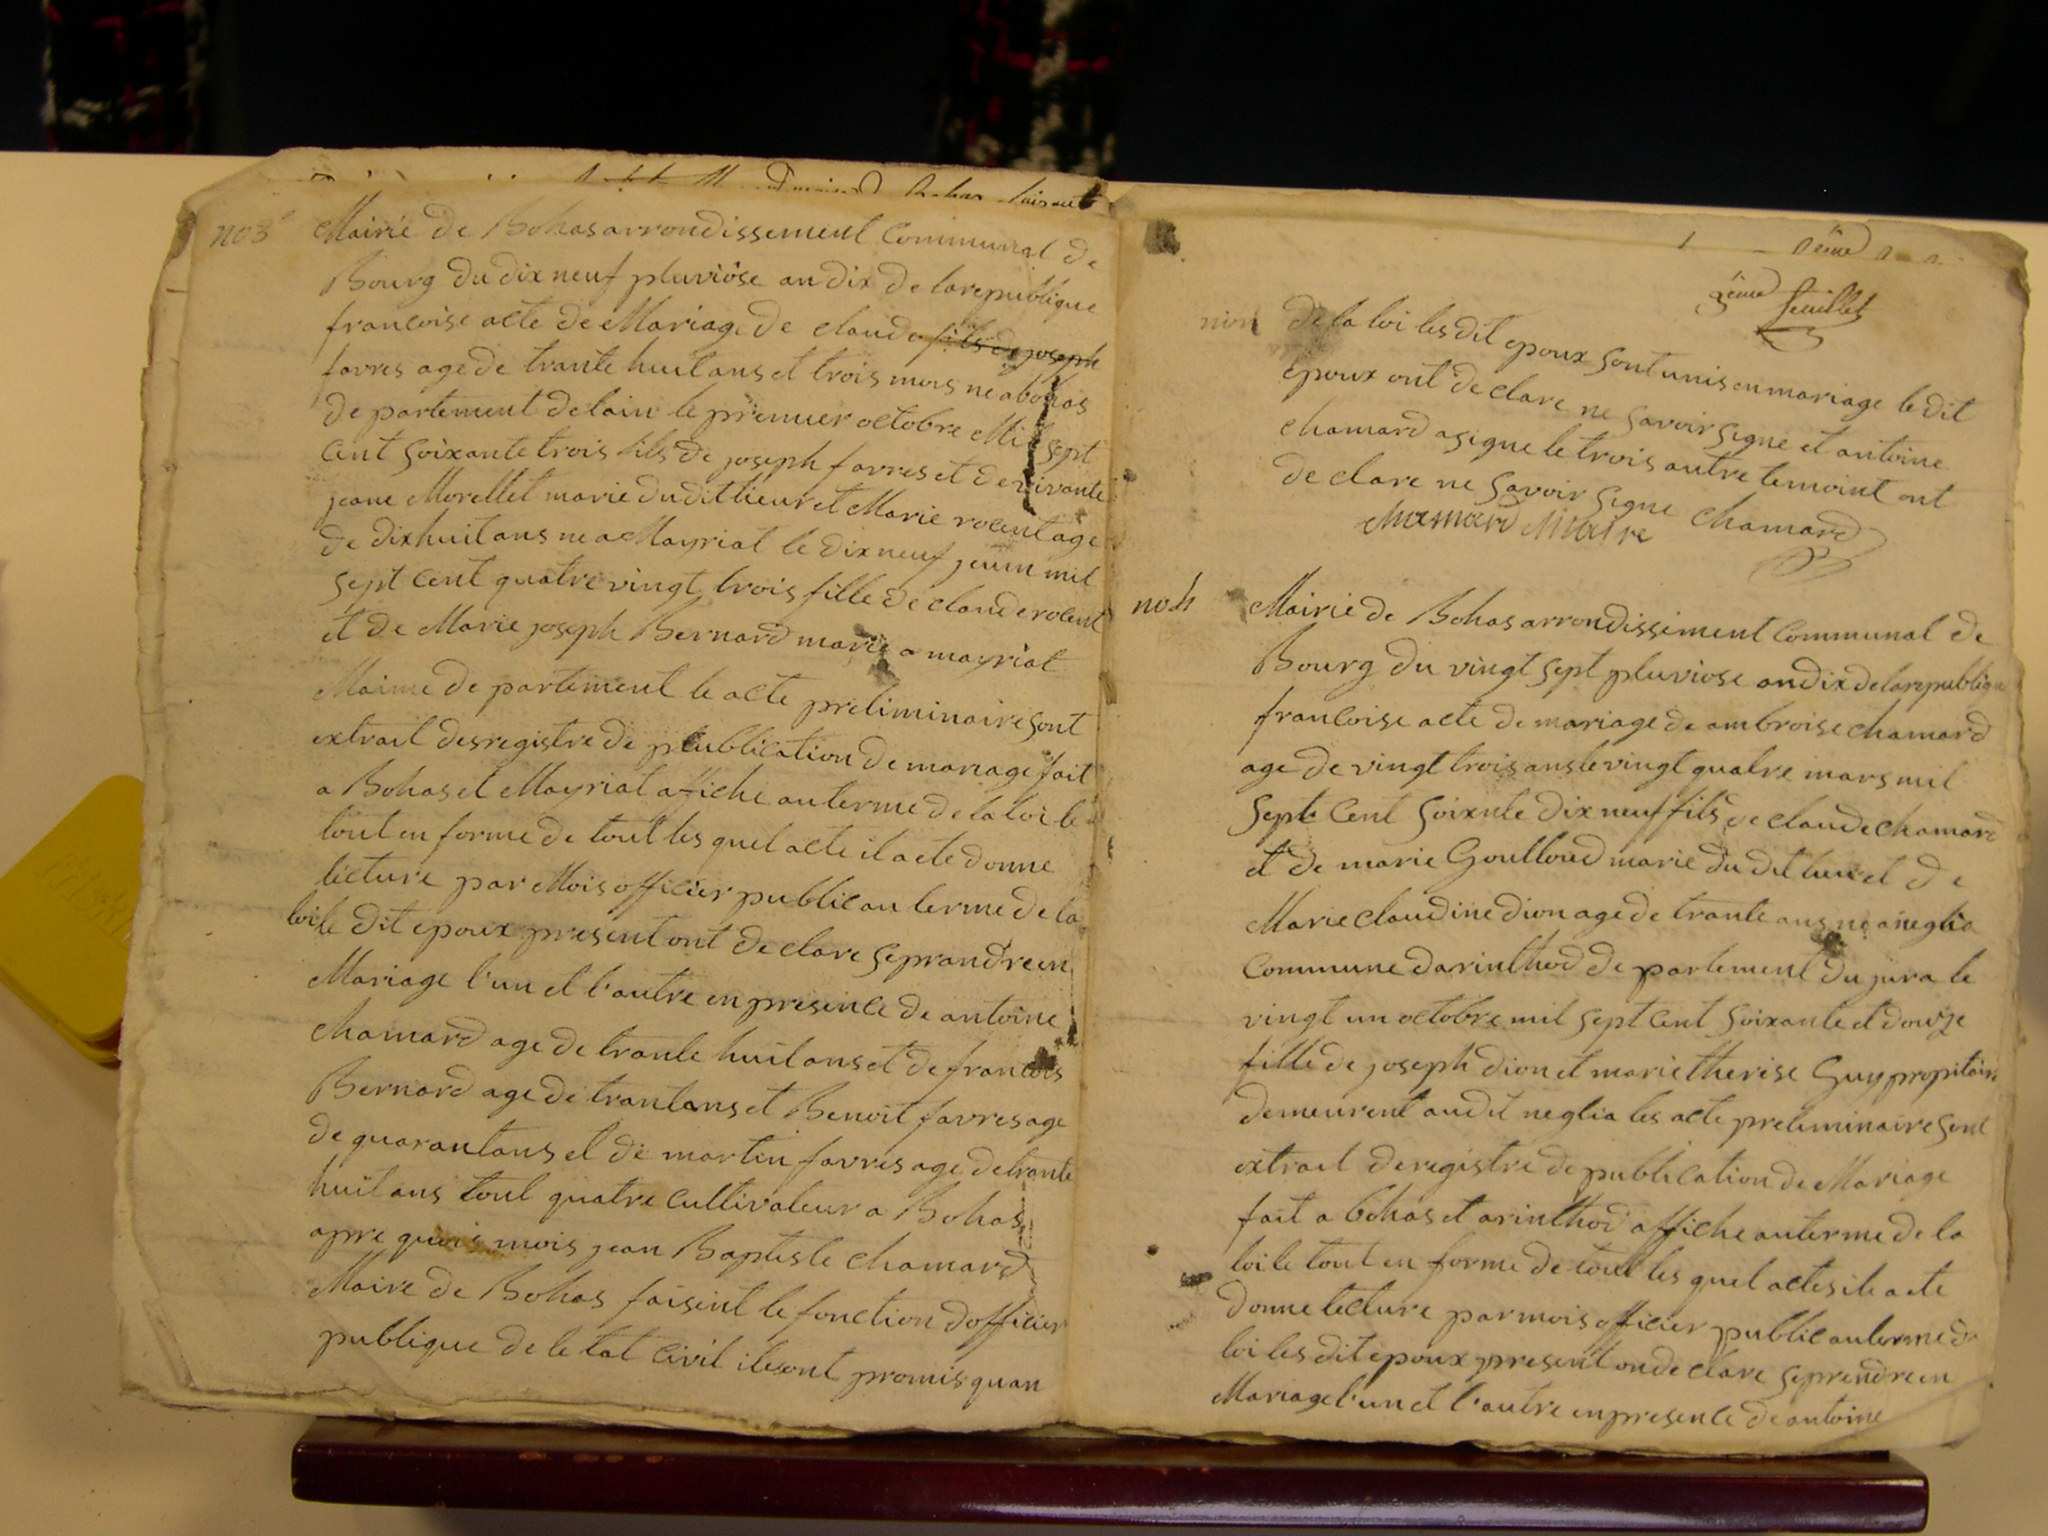 no 3e
Mairie de Bohas arrondissement communal de
Bourg du dix neuf pluviôse an dix de la republique
francoise acte de Mariage de claude fils de joseph
favres age de trante huit ans et trois mois ne a bohas
de partement de lain le premier octobre Mil sept
cent soixante trois fils de joseph favres et de vivante
jeane Morellet marie du dit lieu et Marie rocent age
de dix huit ans ne a Mayriat le dix neuf jeuin mil
sept cent quatre vingt trois fille de claude rocent
et de Marie joseph Bernard marie a mayriat
Maime de partement le acte preliminaire sont
extrait des registre de publication de mariage fait
a Bohas et Mayriat affiche au terme de la loi le
tout en forme de tout les quel acte il a ete donne
lecture par Mois officier public au terme de la
loi le dit epoux present ont de clare se prandre en
Mariage l'un et l'autre en presence de antoine
chamard age de trante huit ans et de francois
Bernard age de trantans et Benoit favres age
de quarantans et de martin favres age de trante
huit ans tout quatre cultivateur a Bohas
apre quois mois jean Baptiste chamard
Maire de Bohas faisent le fonction d officier
publique de le tat civil ils ont promis quan
2eme feuillet
nion de la loi les dit epoux sont unis en mariage le dit
epoux ont de clare ne savoir signe et antoine
chamard a signe le trois autre temoint ont
de clare ne savoir signe chamard
chamard Maire
no 4
Mairie de Bohas arrondissiment communal de
Bourg du vingt sept pluviose an dix de la republique
francoise acte de mariage de ambroise chamard
age de vingt trois ans le vingt quatre mars mil
sept cent soixnte dix neuf fils de claude chamard
et de marie Goulloud marie du dit lieu et de
Marie claudine dion age de trante ans ne a neglia
commune darinthod de partement du jura le
vingt un octobre mil sept cent soixante et douze
fille de joseph dion et marie therise Guy propitaire
demeurent au dit neglia les acte preliminaire sont
extrait de registre de publication de Mariage
fait a bohas et arinthod affiche au terme de la
loi le tout en forme de tout les quel actes il a ete
donne lecture par mois officier public au terme de
loi les dit epoux present on de clare se prendre en
Mariage l'un et l'autre en presence de antoine